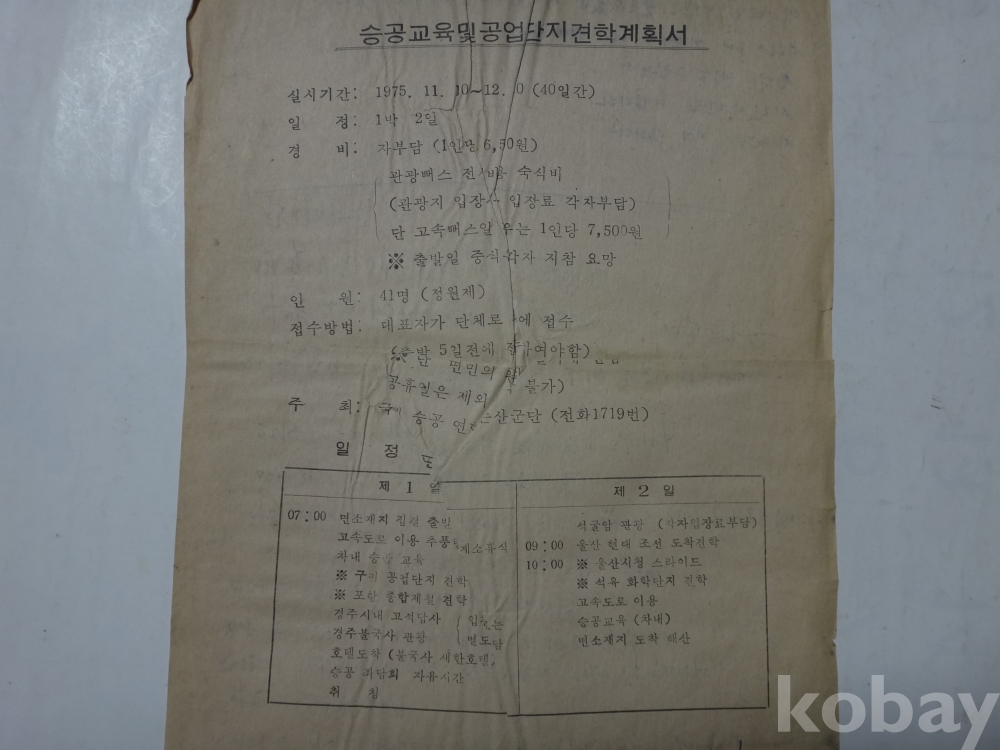 승공교육및공업단지견학계획서
실시기간: 1975. 11. 10~12. 0 (40일간)
일 정: 1박 2일
경 비: 자부담 (1인당 6,50원)
관광빼스 전 비 숙식비
(관광지 입장 입장료 각자부담)
단 고속빼스일 우는 1인당 7,500원
※ 출발일 중식 각자 지참 요망
인 원: 41명 (정원제)
접수방법: 대표자가 단체로 에 접수
(출발 5일전에 여야함)
단 면민의
공휴일은 제외 불가)
주 최: 승공 연 산군단 (전화1719번)
일 정
제 1 일
07:00 면소재지 집결 출발
고속도로 이용 추풍 게소휴식
차내 승공 교육
※ 구미 공업단지 견학
※ 포항 종합제철 견학
경주시내 고적답사
경주불국사 관광
입 는
별도 담
호텔도착 (불국사 세한호텔)
승공 좌담회 자유시간
취 침
제 2 일
석굴암 관광 (각자입장료부담)
09:00 울산 현대 조선 도착견학
10:00 ※ 울산시청 스라이드
※ 석유 화학단지 견학
고속도로 이용
승공교육 (차내)
면소재지 도착 해산
kobay